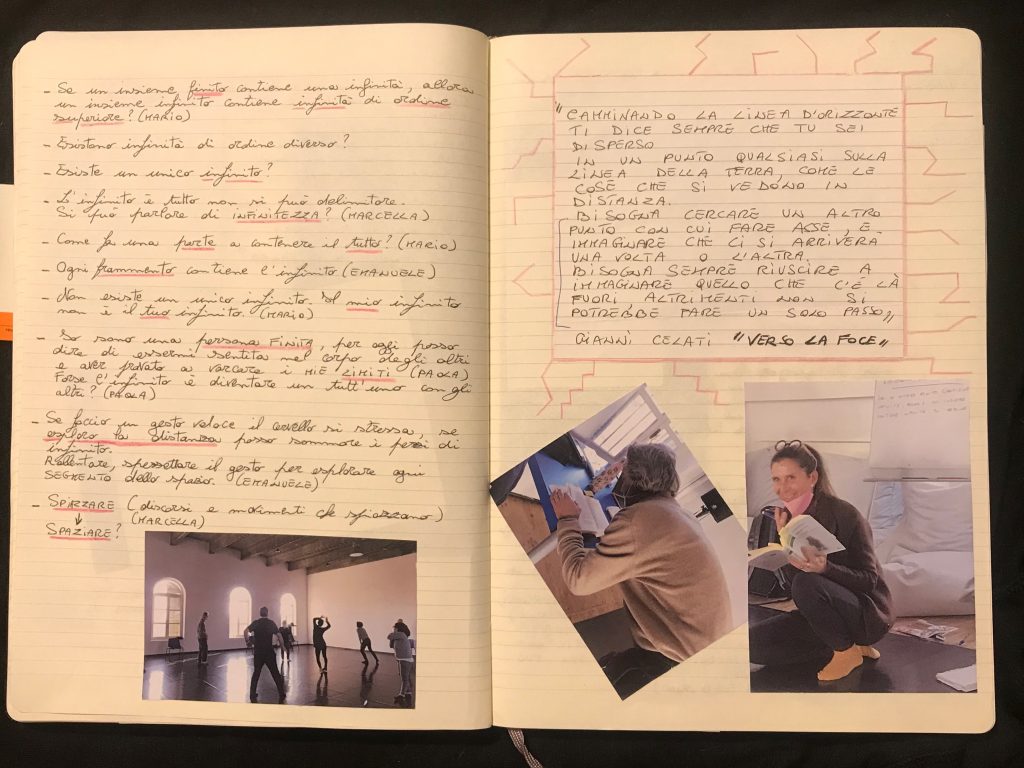 - Se un insieme finito contiene una infinità, allora
un insieme infinito contiene infinità di ordine
superiore? (MARIO)
- Esistono infinità di ordine diverso?
- Esiste un unico infinito?
- L'infinito è tutto non si può delimitare.
Si può parlare di INFINITEZZA? (MARCELLA)
- Come fa una parte a contenere il tutto? (MARIO)
- Ogni frammento contiene l'infinito (EMANUELE)
- Non esiste un unico infinito. Il mio infinito
non è il tuo infinito. (MARIO)
- Io sono una persona FINITA, per oggi posso
dire di essermi sentita nel corpo degli altri
e aver provato a varcare i MIEI LIMITI (PAOLA)
Forse l'infinito è diventare un tutt'uno con gli
altri? (PAOLA)
- Se faccio un gesto veloce il cervello si stressa, se
esploro la distanza posso sommare i pezzi di
infinito.
Rallentare, spezzettare il gesto per esplorare ogni
SEGMENTO dello spazio. (EMANUELE)
- SPIAZZARE (discorsi e movimenti che spiazzano)
(MARCELLA)
SPAZIARE?
"CAMMINANDO LA LINEA D'ORIZZONTE
TI DICE SEMPRE CHE TU SEI
DISPERSO
IN UN PUNTO QUALSIASI SULLA
LINEA DELLA TERRA, COME LE
COSE CHE SI VEDONO IN
DISTANZA.
BISOGNA CERCARE UN ALTRO
PUNTO CON CUI FARE ASSE, E
IMMAGINARE CHE CI SI ARRIVERÀ
UNA VOLTA O L'ALTRA.
BISOGNA SEMPRE RIUSCIRE A
IMMAGINARE QUELLO CHE C'È LÀ
FUORI, ALTRIMENTI NON SI
POTREBBE FARE UN SOLO PASSO"
GIANNI CELATI "VERSO LA FOCE"